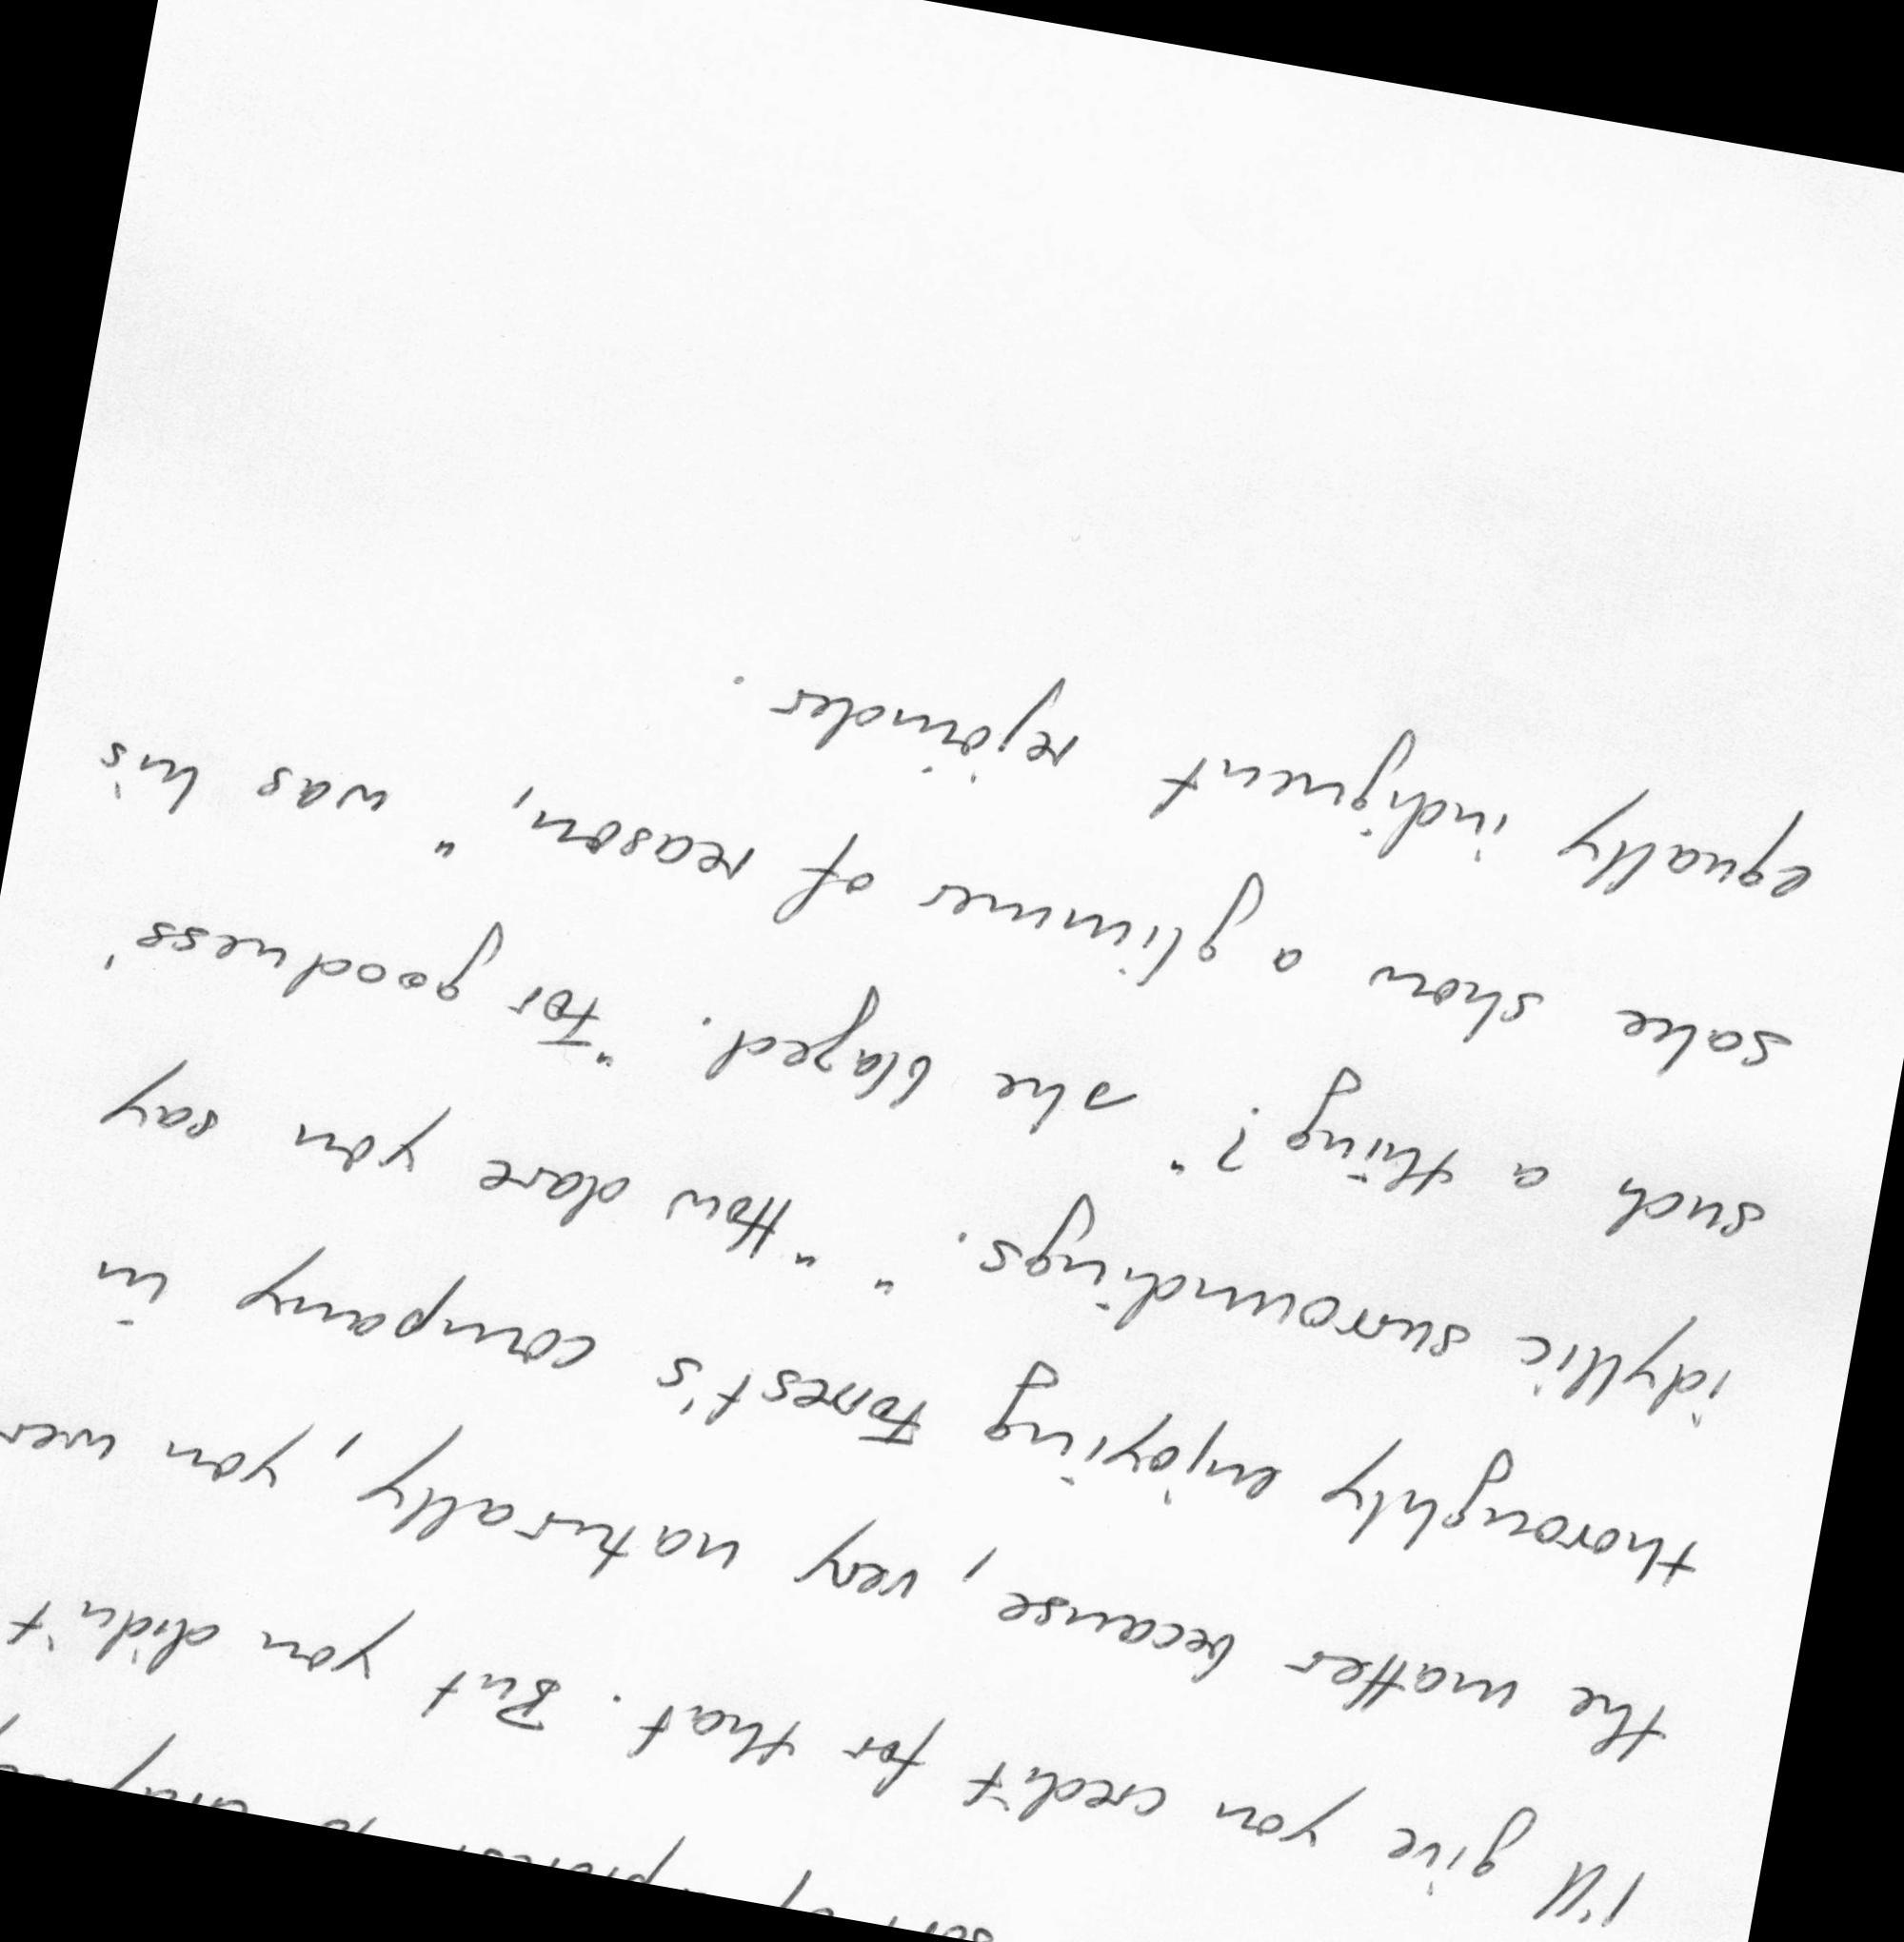 I'll give you credit for that. But you didn't
the matter because, very naturally, you wer
thoroughly enjoying Forrest's company in
idyllic surroundings." "How dare you say
such a thing?" she blazed. "For goodness'
sake show a glimmer of reason," was his
equally indignent rejoinder.